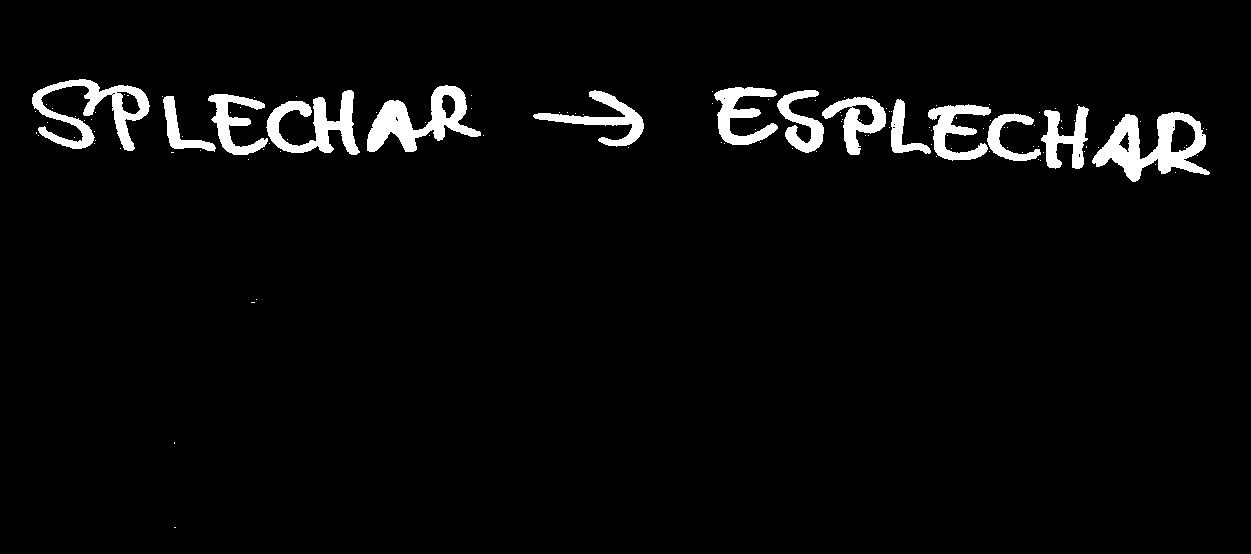 SPLECHAR → ESPLECHAR